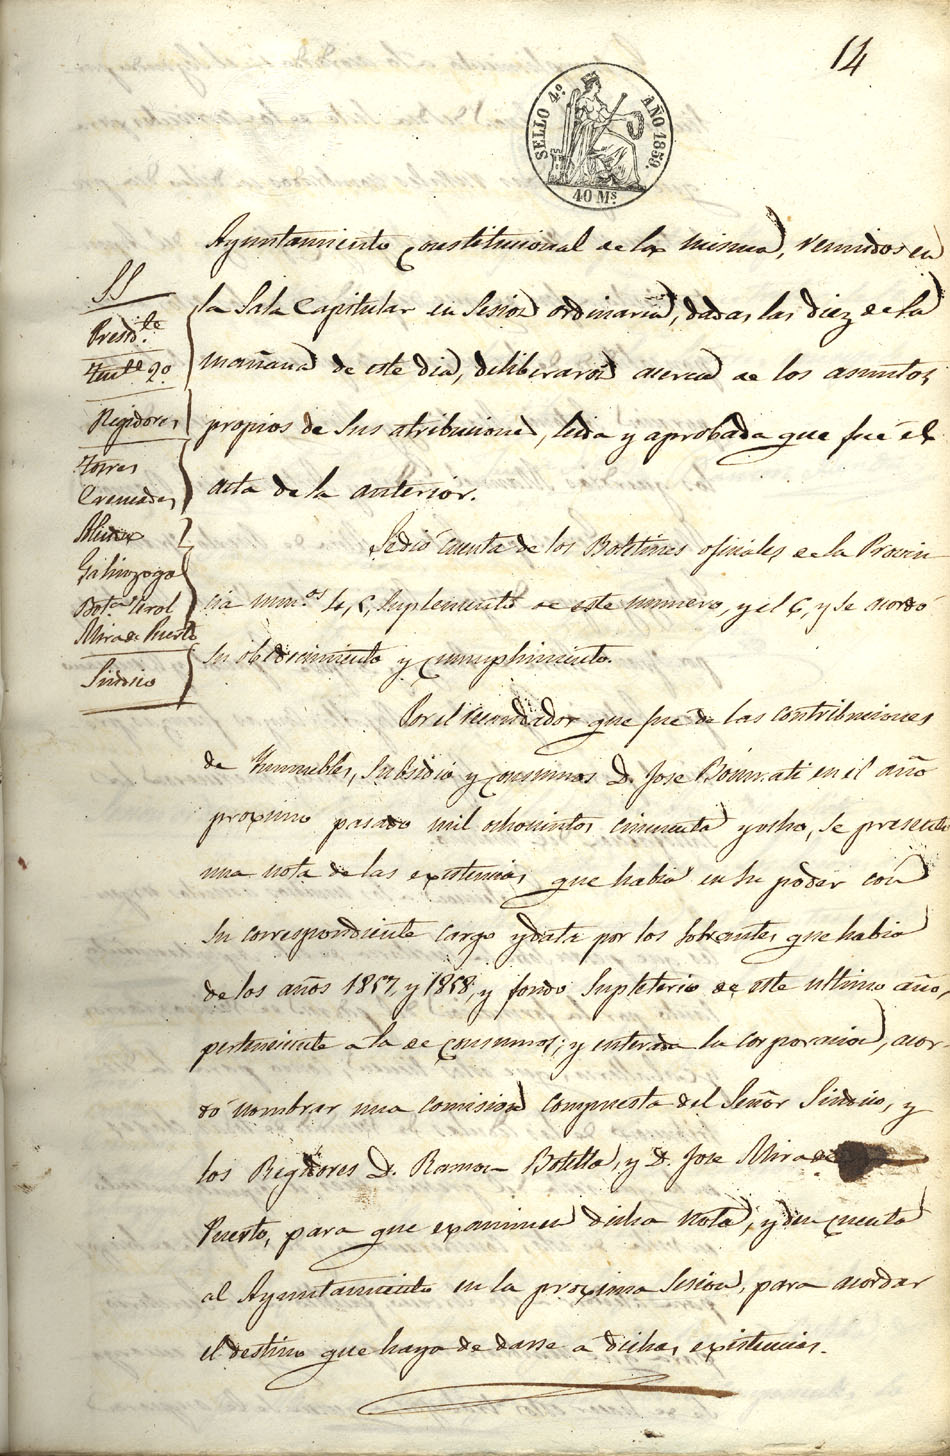 14
SELLO 4º. AÑO 1859.
40 Ms
SS
Presid.te
Tente 2º.
Regidores
Torres
Cremades
Galinzoga
Bot.a Pirol
Mira de Puerto
Sindico
Ayuntamiento Constitucional de la misma, reunidos en
la Sala Capitular en Sesion ordinaria, dadas las diez de la
mañana de este dia, deliberaron acerca de los asuntos
propios de sus atribuciones, leida y aprobada que fué el
acta de la anterior.
Se dió cuenta de los Boletines oficiales de la Provin
cia num.os 4, 5, suplemento de este numero, y el 6, y se acordó
su obedecimiento y cumplimiento.
Por el recaudador que fue de las contribuciones
de Ynmuebles, Subsidio y consumos D. Jose en el año
proximo pasado mil ochocientos cincuenta y ocho, se presentó
una nota de las existencias que habia en su poder con
su correspondiente cargo y data por los sobrantes que habia
de los años 1857, y 1858, y fondo Supletorio de este ultimo año,
perteneciente a la de consumos; y enterada la corporacion, acor-
dó nombrar una comision compuesta del Señor Sindico, y
los Regidores D. Ramon Botella, y D. Jose Mira de
Puerto, para que examinen dicha nota, y den cuenta
al Ayuntamiento en la proxima Sesion, para acordar
el destino que haya de darse a dichas existencias.